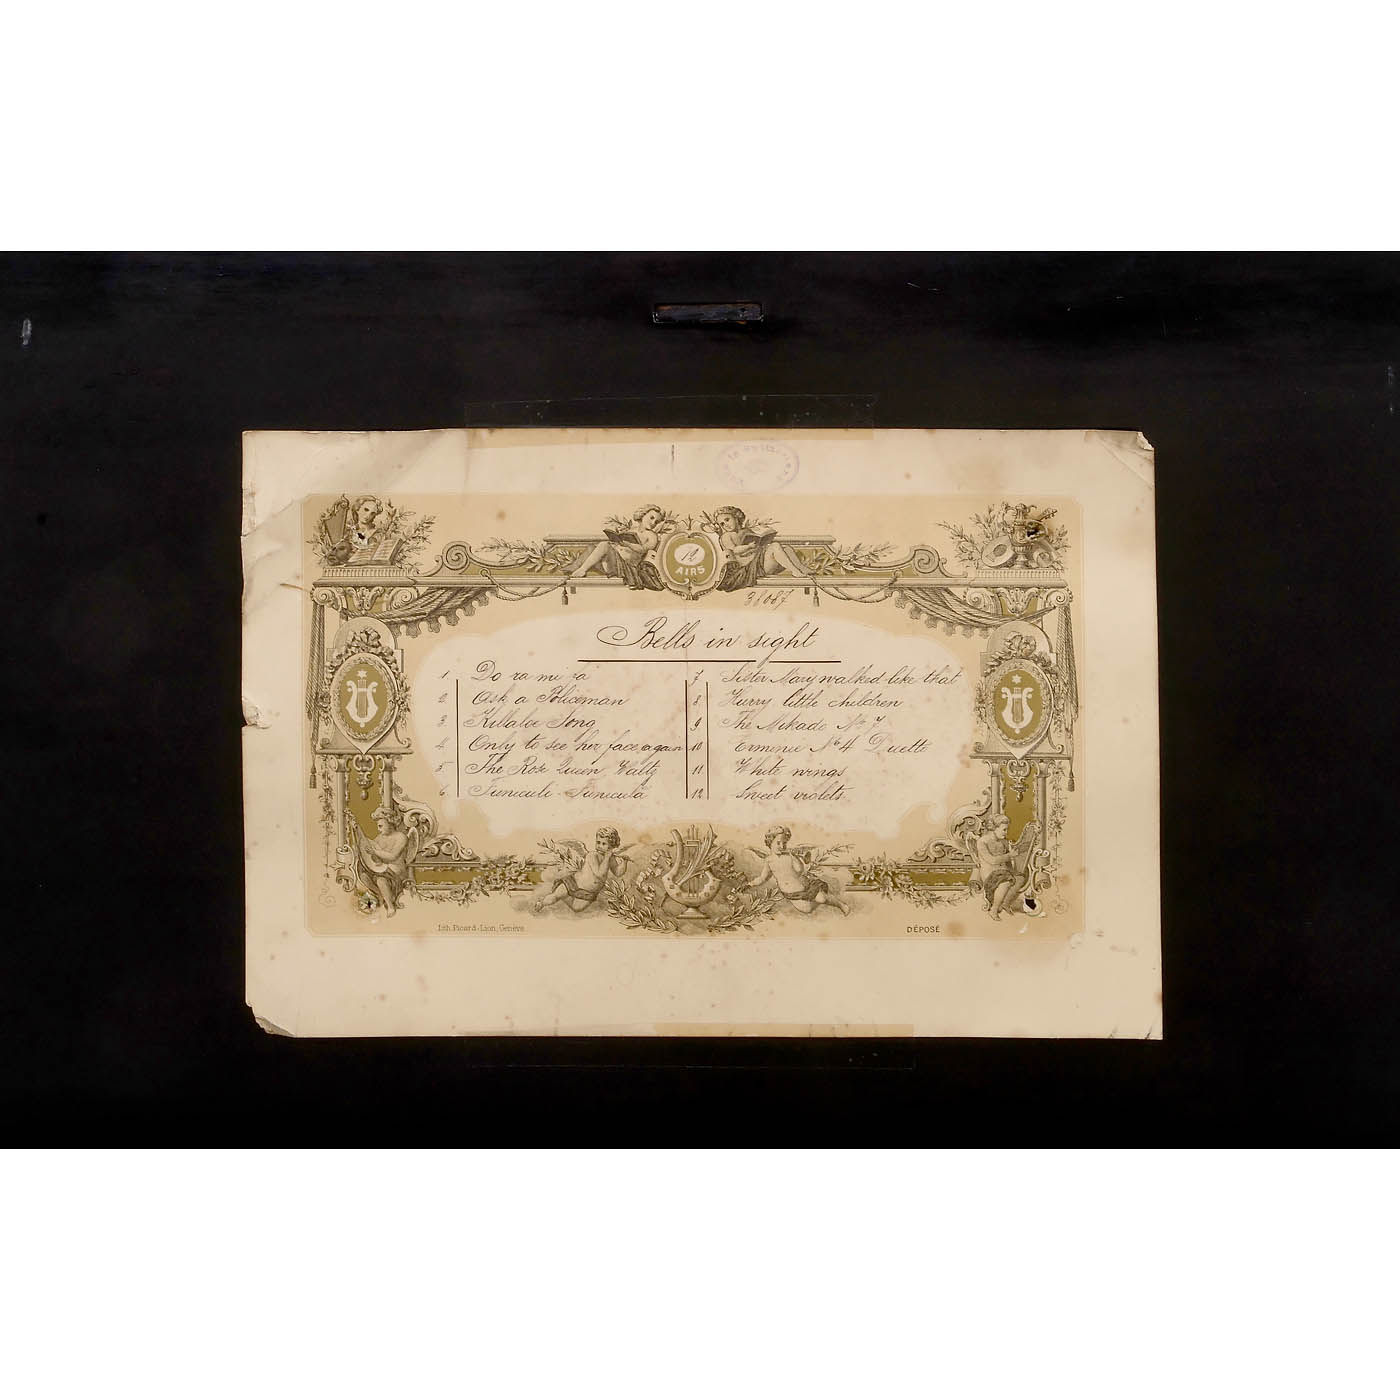 12
AIRS
38087
Bells in sight
1 Do ra mi fa
2 Ask a Policeman
3 Killaloe Song
4 Only to see her face again
5 The Rose Queen Waltz
6 Funiculi-Funiculà
7 Sister Mary walked like that
8 Hurry little children
9 The Mikado No 7
10 Erminie No 4 Duetto
11 White wings
12 Sweet violets
Lith. Picard-Lion, Genève
DÉPOSÉ